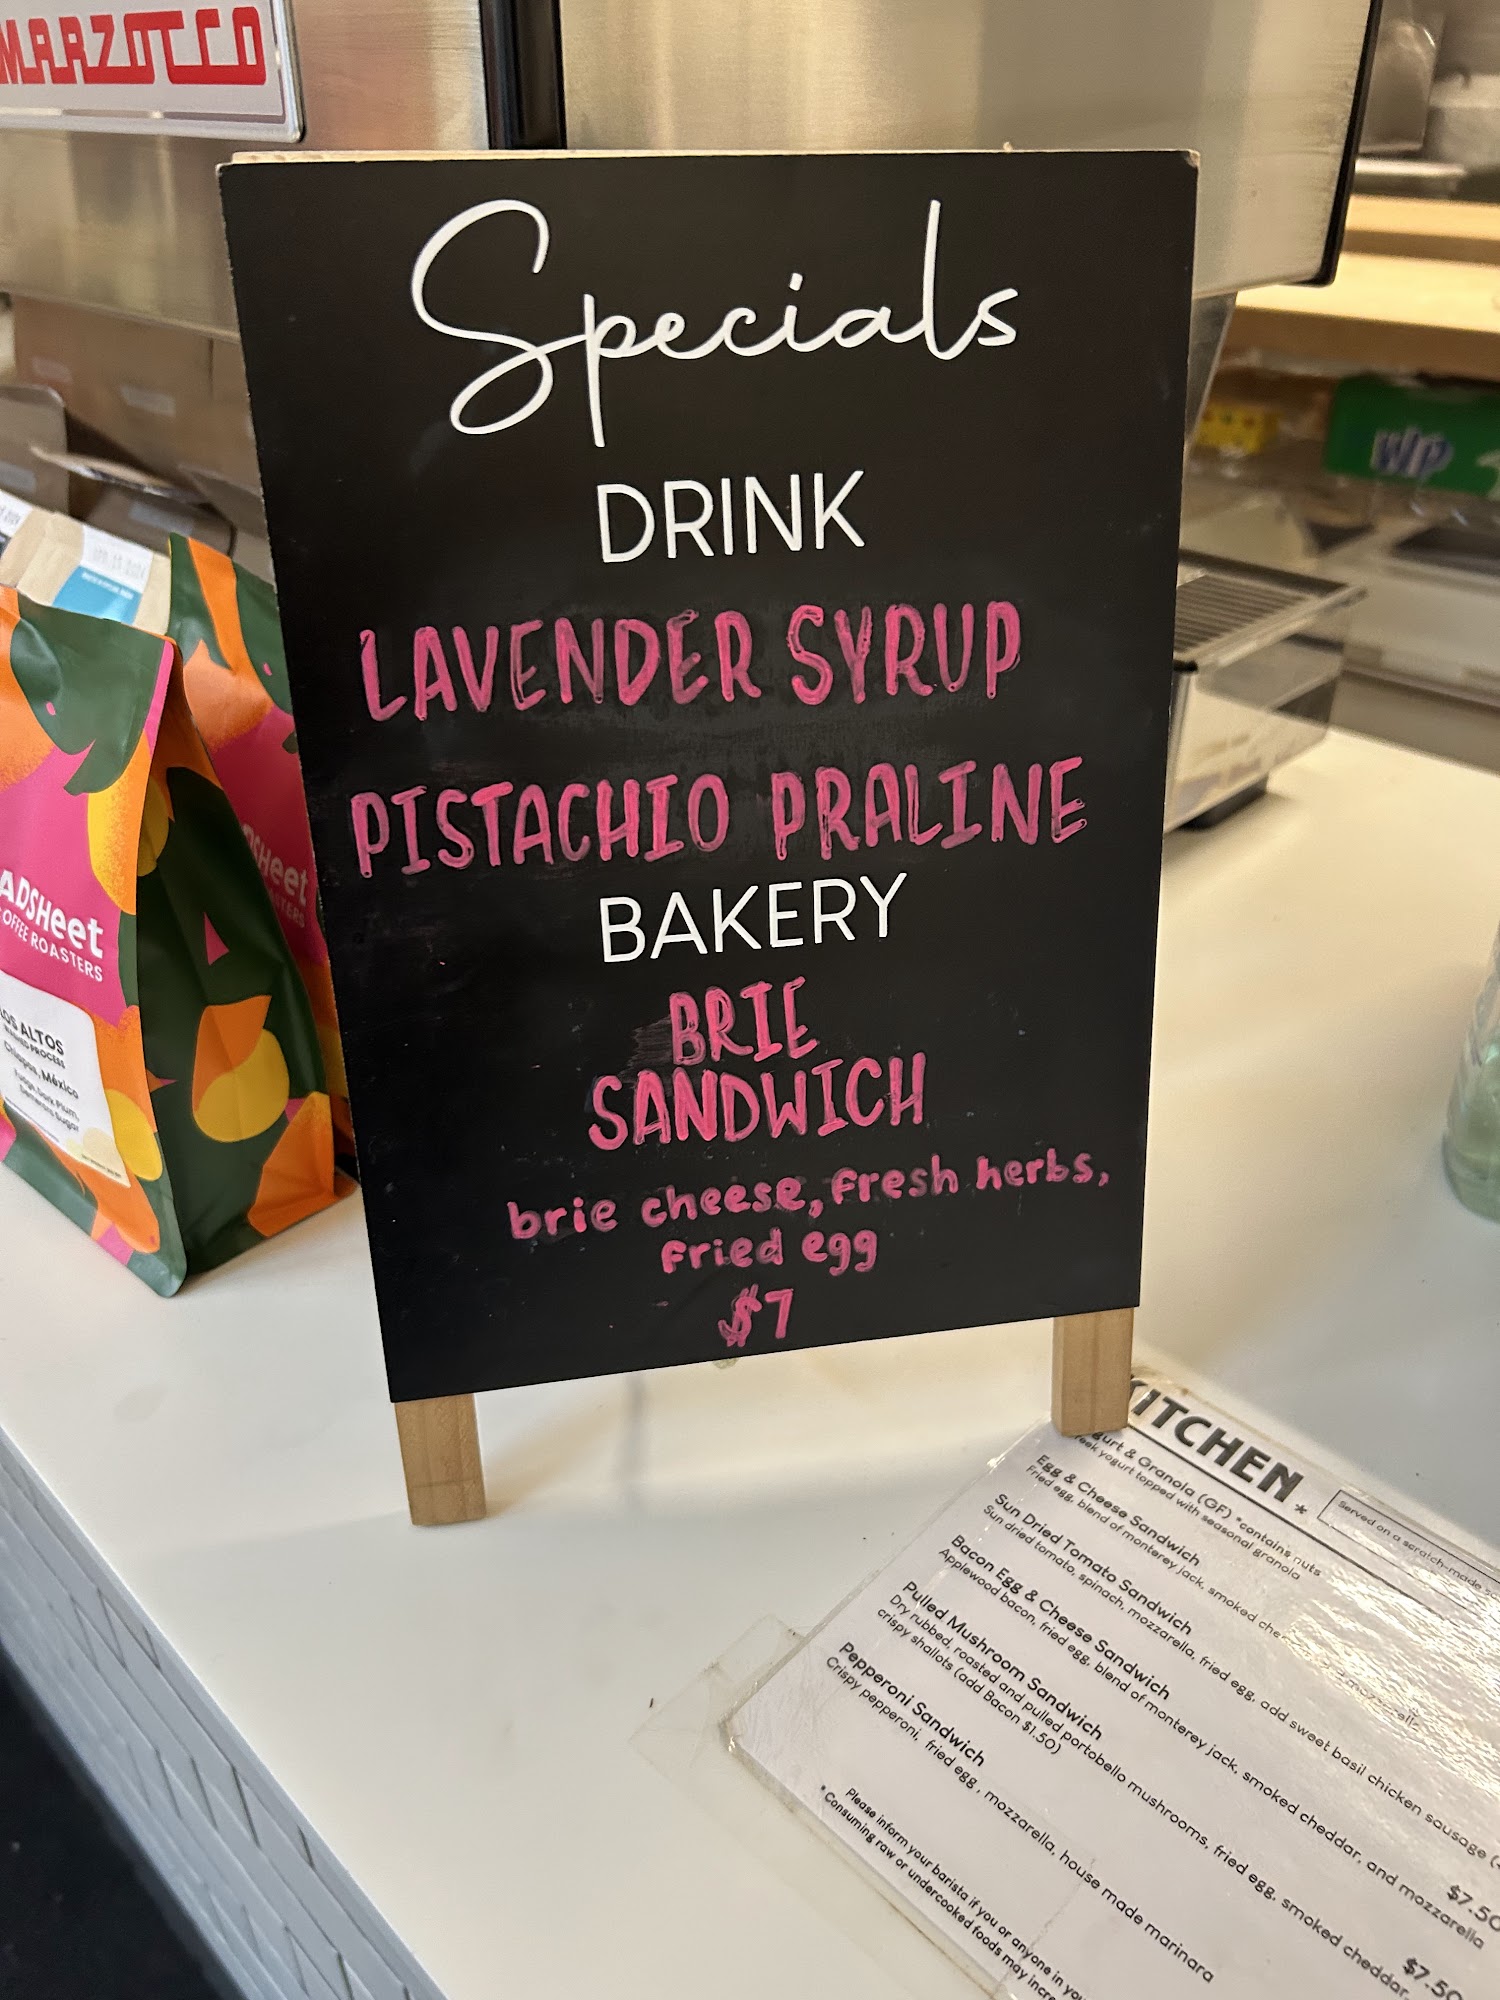 MARZOCCO
Specials
DRINK
LAVENDER SYRUP
PISTACHIO PRALINE
BAKERY
BRIE
SANDWICH
brie cheese, fresh herbs,
fried egg
$7
ADSHeet
COFFEE ROASTERS
LOS ALTOS
WASHED PROCESS
Chiapas, México
Fudge, Dark Plum,
Demerara Sugar
Wip
KITCHEN *
Served on a scratch-made
gurt & Granola (GF) *contains nuts
reek yogurt topped with seasonal granola
Egg & Cheese Sandwich
Fried egg, blend of monterey jack, smoked mozzarella
Sun Dried Tomato Sandwich
Sun dried tomato, spinach, mozzarella, fried egg, add sweet basil chicken sausage
Bacon Egg & Cheese Sandwich
Applewood bacon, fried egg, blend of monterey jack, smoked cheddar, and mozzarella
$7.50
Pulled Mushroom Sandwich
Dry rubbed, roasted and pulled portobello mushrooms, fried egg, smoked cheddar,
crispy shallots (add Bacon $1.50)
$7.50
Pepperoni Sandwich
Crispy pepperoni, fried egg, mozzarella, house made marinara
Please inform your barista if you or anyone in you
*Consuming raw or undercooked foods may incre